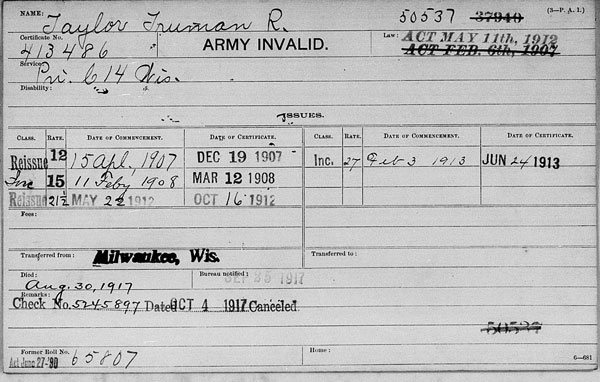 NAME: Taylor Truman R. 50537 37940 (3—P. A. 1.)
Certificate No. 413486 ARMY INVALID. Law: ACT MAY 11th, 1912
ACT FEB. 6th, 1907
Service: Pri. C 14 Wis.
Disability:
ISSUES.
CLASS. RATE. DATE OF COMMENCEMENT. DATE OF CERTIFICATE. CLASS. RATE. DATE OF COMMENCEMENT. DATE OF CERTIFICATE.
Reissue 12 15 Apl. 1907 DEC 19 1907 Inc. 27 Feb 3 1913 JUN 24 1913
Inc 15 11 Feby 1908 MAR 12 1908
Reissue 21½ MAY 22 1912 OCT 16 1912
Fees:
Transferred from: Milwaukee, Wis. Transferred to:
Died: Aug. 30, 1917 Bureau notified: SEP 1917
Remarks:
Check No. 5245897 Dated OCT 4 1917 Canceled
50537
Former Roll No. 65807 Home:
Act June 27-'90 6—681